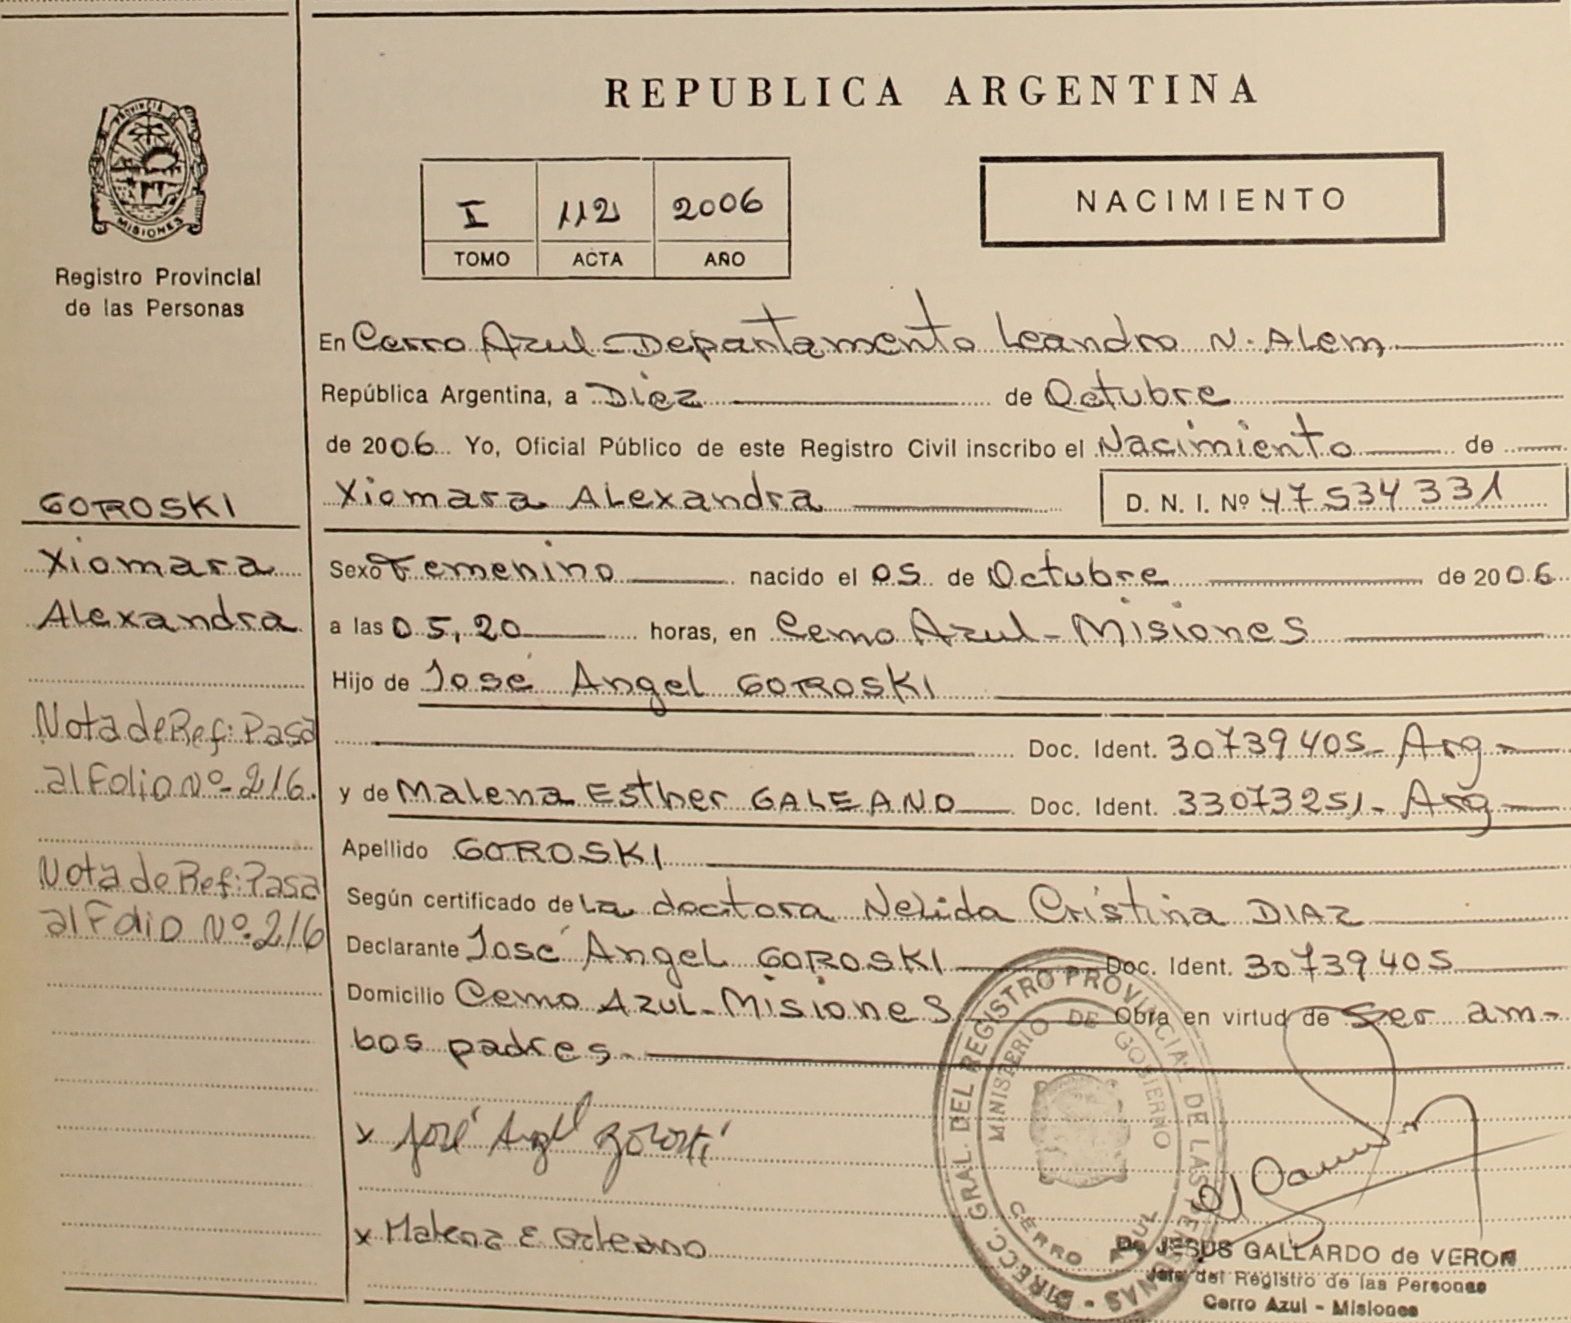 REPUBLICA ARGENTINA
PROVINCIA DE
MISIONES
Registro Provincial
de las Personas
I 112 2006
TOMO ACTA AÑO
NACIMIENTO
En Cerro Azul - Departamento Leandro N. Alem
República Argentina, a Diez de Octubre
de 2006 Yo, Oficial Público de este Registro Civil inscribo el Nacimiento de
Xiomara Alexandra D. N. I. Nº 47534331
GOROSKI
Xiomara
Alexandra
Nota de Ref: Pasa
al Folio Nº-216.
Nota de Ref: Pasa
al Folio Nº.216
Sexo Femenino nacido el 05 de Octubre de 2006
a las 05,20 horas, en Cerro Azul - Misiones
Hijo de José Angel GOROSKI
Doc. Ident. 30739405- Arg-
y de Malena Esther GALEANO Doc. Ident. 33073251- Arg
Apellido GOROSKI
Según certificado de La doctora Nelida Cristina DIAZ
Declarante José Angel GOROSKI Doc. Ident. 30739405
Domicilio Cerro Azul - Misiones Obra en virtud de ser am-
bos padres.-
x José Angel Goroski
x Malena E Galeano
DIRECC. GRAL. DEL REGISTRO PROVINCIAL DE LAS PERSONAS -
MINISTERIO DE GOBIERNO
CERRO AZUL
De JESUS GALLARDO de VERON
Jefe del Registro de las Personas
Cerro Azul - Misiones